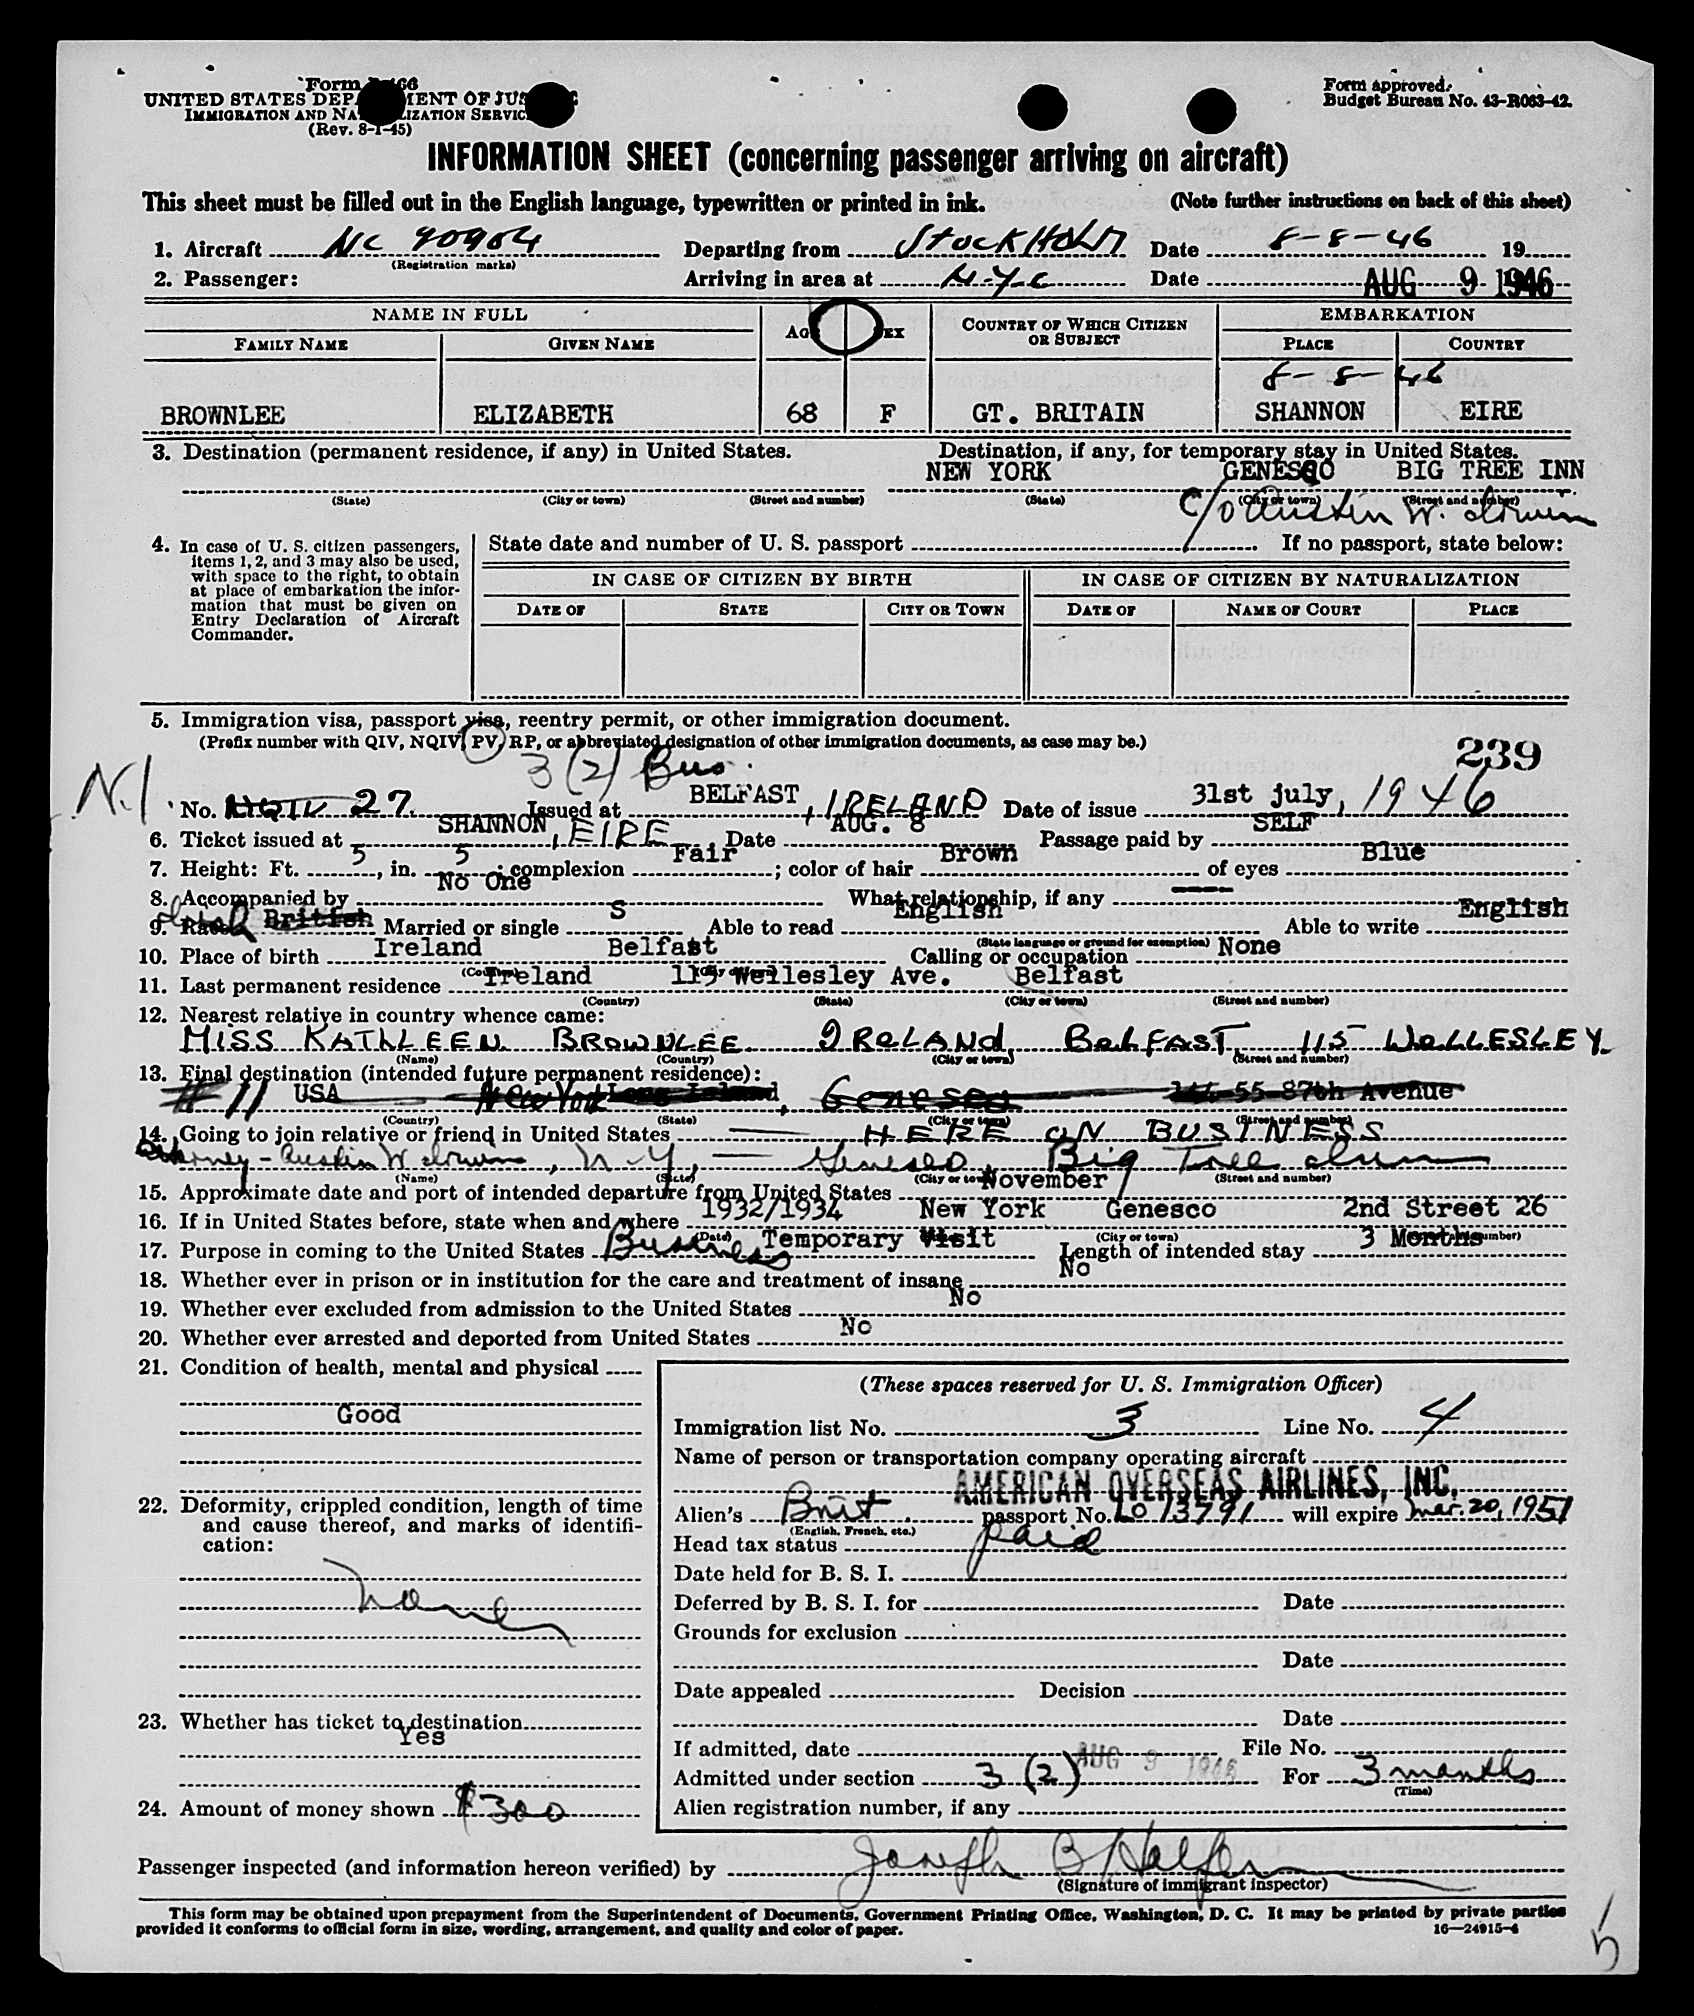 Form I-466
UNITED STATES DEPARTMENT OF JUSTICE
IMMIGRATION AND NATURALIZATION SERVICE
(Rev. 8-1-45)
Form approved.
Budget Bureau No. 43-R063-42.
INFORMATION SHEET (concerning passenger arriving on aircraft)
This sheet must be filled out in the English language, typewritten or printed in ink. (Note further instructions on back of this sheet)
1. Aircraft NC 90904 Departing from STOCKHOLM Date 8-8-46 19
(Registration marks)
2. Passenger: Arriving in area at N.Y.C Date AUG 9 1946
NAME IN FULL AGE SEX COUNTRY OF WHICH CITIZEN OR SUBJECT EMBARKATION
FAMILY NAME GIVEN NAME PLACE COUNTRY
8-8-46
BROWNLEE ELIZABETH 68 F GT. BRITAIN SHANNON EIRE
3. Destination (permanent residence, if any) in United States. Destination, if any, for temporary stay in United States.
NEW YORK GENESEO BIG TREE INN
(State) (City or town) (Street and number) (State) (City or town) (Street and number)
C/O Austin W. Irwin
4. In case of U. S. citizen passengers, items 1, 2, and 3 may also be used, with space to the right, to obtain at place of embarkation the information that must be given on Entry Declaration of Aircraft Commander.
State date and number of U. S. passport If no passport, state below:
IN CASE OF CITIZEN BY BIRTH IN CASE OF CITIZEN BY NATURALIZATION
DATE OF STATE CITY OR TOWN DATE OF NAME OF COURT PLACE
5. Immigration visa, passport visa, reentry permit, or other immigration document.
(Prefix number with QIV, NQIV, PV, RP, or abbreviated designation of other immigration documents, as case may be.)
239
N.I 3(2) Bus.
No. NQIV 27 Issued at BELFAST, IRELAND Date of issue 31st july, 1946
6. Ticket issued at SHANNON, EIRE Date AUG. 8 Passage paid by SELF
7. Height: Ft. 5, in. 5; complexion Fair; color of hair Brown of eyes Blue
8. Accompanied by No One What relationship, if any
9. Race British Married or single S Able to read English Able to write English
(State language or ground for exemption)
10. Place of birth Ireland Belfast Calling or occupation None
(Country) (City or town)
11. Last permanent residence Ireland 115 Wellesley Ave. Belfast
(Country) (State) (City or town) (Street and number)
12. Nearest relative in country whence came:
MISS KATHLEEN BROWNLEE IRELAND BELFAST 115 WELLESLEY
(Name) (Country) (City or town) (Street and number)
13. Final destination (intended future permanent residence):
# 11 USA New York Long Island, Geneseo 55 87th Avenue
(Country) (State) (City or town) (Street and number)
14. Going to join relative or friend in United States HERE ON BUSINESS
Attorney - Austin W Irwin, N-Y, Geneseo, Big Tree Inn
(Name) (State) (City or town) (Street and number)
15. Approximate date and port of intended departure from United States November
16. If in United States before, state when and where 1932/1934 New York Genesco 2nd Street 26
(Date) (City or town) (Street and number)
17. Purpose in coming to the United States Business Temporary Visit Length of intended stay 3 Months
18. Whether ever in prison or in institution for the care and treatment of insane No
19. Whether ever excluded from admission to the United States No
20. Whether ever arrested and deported from United States No
21. Condition of health, mental and physical
Good
22. Deformity, crippled condition, length of time and cause thereof, and marks of identification:
None
23. Whether has ticket to destination
Yes
24. Amount of money shown $300
(These spaces reserved for U. S. Immigration Officer)
Immigration list No. 3 Line No. 4
Name of person or transportation company operating aircraft
AMERICAN OVERSEAS AIRLINES, INC.
Alien's Brit. passport No. Lo 13791 will expire Mar. 20, 1951
(English, French, etc.)
Head tax status paid
Date held for B. S. I.
Deferred by B. S. I. for Date
Grounds for exclusion
Date
Date appealed Decision
Date
If admitted, date AUG 9 1946 File No.
Admitted under section 3 (2) For 3 months
(Time)
Alien registration number, if any
Passenger inspected (and information hereon verified) by Joseph B Halfon
(Signature of immigrant inspector)
This form may be obtained upon prepayment from the Superintendent of Documents, Government Printing Office, Washington, D. C. It may be printed by private parties
provided it conforms to official form in size, wording, arrangement, and quality and color of paper. 16—24915-4